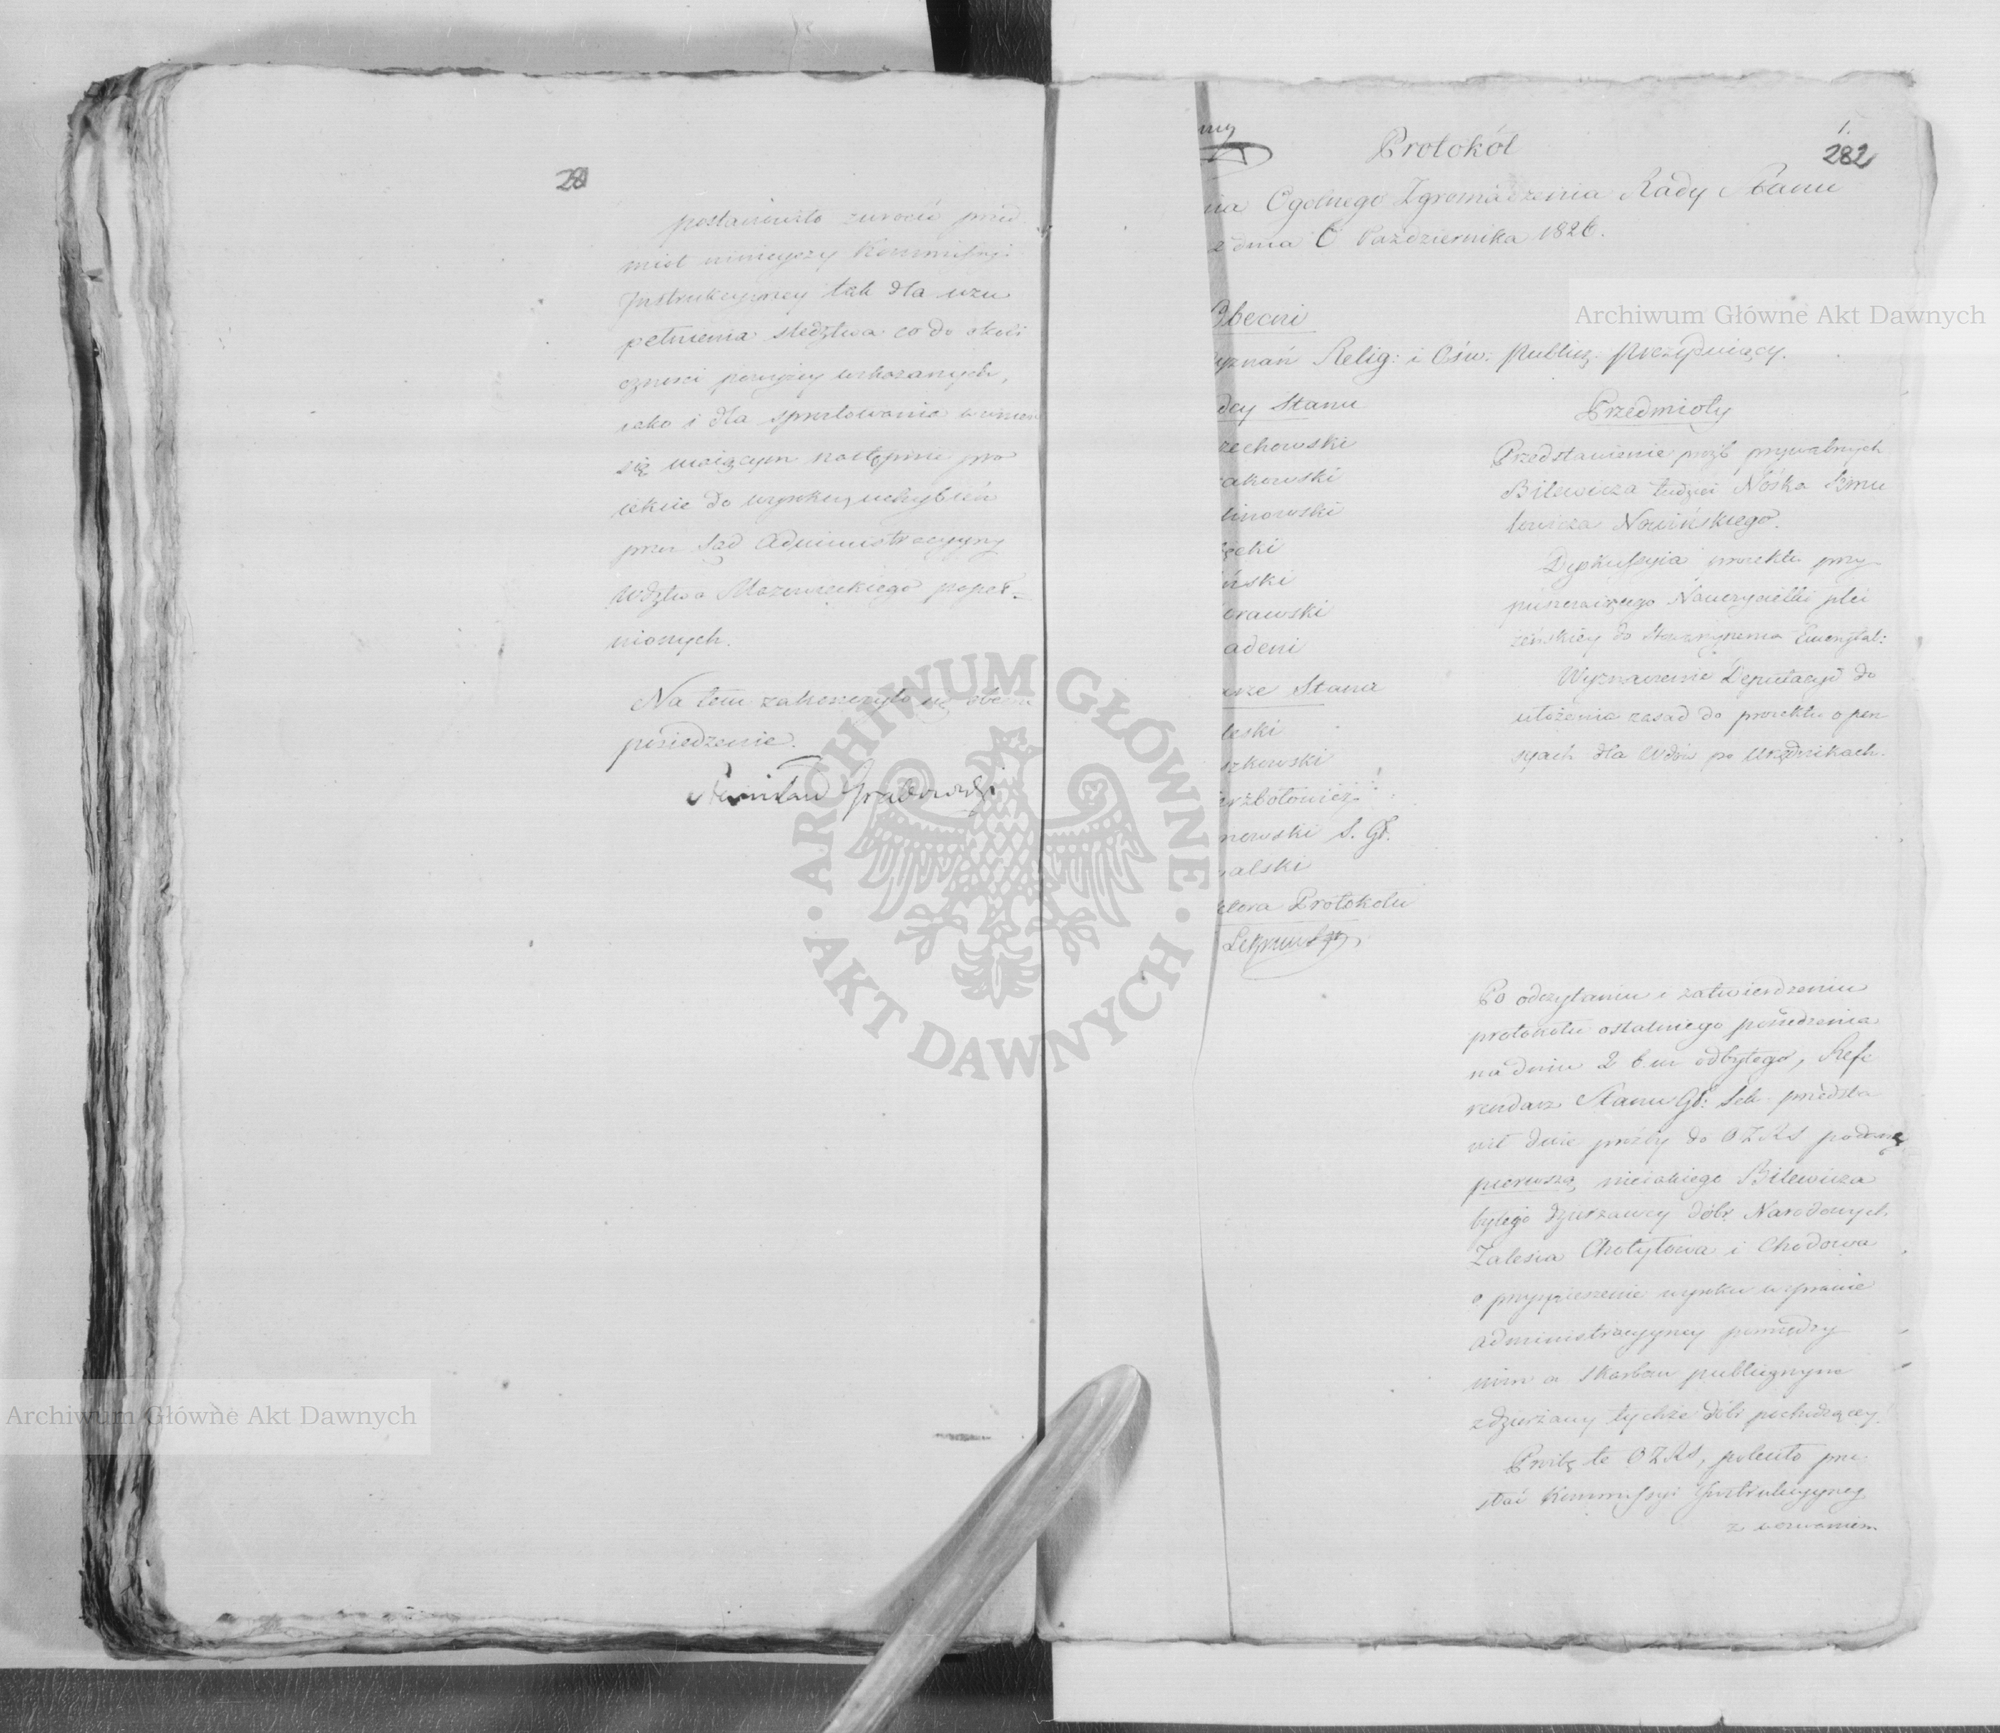 281
postanowiło zwrócić przed
miot ninieyszy Kommissyi
Instrukcyjney tak dla uzu
pełnienia śledztwa co do okoli
czności powyżey wskazanych,
iako i dla sprostowania w
się maiącym nastąpić pro
iekcie do wyroku, uchybień
przez Sąd Administracyjny
Wdztwa Mazowieckiego popeł-
nionych.
Na tem zakończyło się obecne
posiedzenie.
Stanisław Grabowski
1.
282
Protokół
nia Ogólnego Zgromadzenia Rady Stanu
dnia 6 Października 1826.
Obecni
yznań Relig: i Ośw: Publicz: Prezyduiący.
dcy Stanu
zechowski
akowski
linowski
ęcki
ński
orawski
adeni
arze Stanu
leski
szkowski
erzbołowicz
nowski S. Gł.
alski
ktora Protokołu
Przedmioty
Przedstawienie prożb prywatnych
Bilewicza tudzież Nośka Szmu
lowicza Nowińskiego.
Dyskussyia proiektu przy
puszczaiącego Nauczycielki płci
żeńskiey do Stowarzyszenia Emerytal:
Wyznaczenie Deputacyi do
ułożenia zasad do proiektu o pen
syach dla Wdów po Urzędnikach.
Po odczytaniu i zatwierdzeniu
protokołu ostatniego posiedzenia
na dniu 2 b. m odbytego, Refe
rendarz Stanu Gł: Sek: przedsta
wił dwie prożby do OZRS podane,
pierwszą, nieiakiego Bilewicza
byłego dzierżawcy dóbr Narodowych
Zalesia Chotyłowa i Chodowa
o przyspieszenie wyroku w sprawie
administracyjney pomiędzy
nim a Skarbem publicznym
z dzierżawy tychże dóbr pochodzącey.
Prożbę tę OZRS, poleciło prze
słać Kommissyi Instrukcyjney
z wezwaniem
Archiwum Główne Akt Dawnych
Archiwum Główne Akt Dawnych
ARCHIWUM GŁÓWNE AKT DAWNYCH